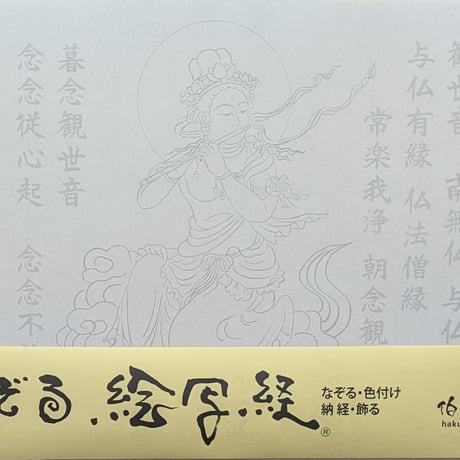 観世音 南無仏 与仏
与仏有縁 仏法僧縁
常楽我浄 朝念観
暮念観世音
念念従心起 念念不
ぞる・絵写経®
なぞる・色付け
納経・飾る
伯
haku